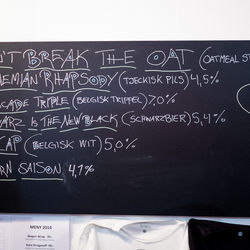 N'T BREAK THE OAT (OATMEAL ST
EMIAN RHAPSODY (TJECKISK PILS) 4,5%
CADE TRIPLE (BELGISK TRIPPEL) 7,0%
WARZ IS THE NEW BLACK (SCHWARZBIER) 5,4%
CAP (BELGISK WIT) 5,0%
RN SAISON 4,7%
MENY 2014